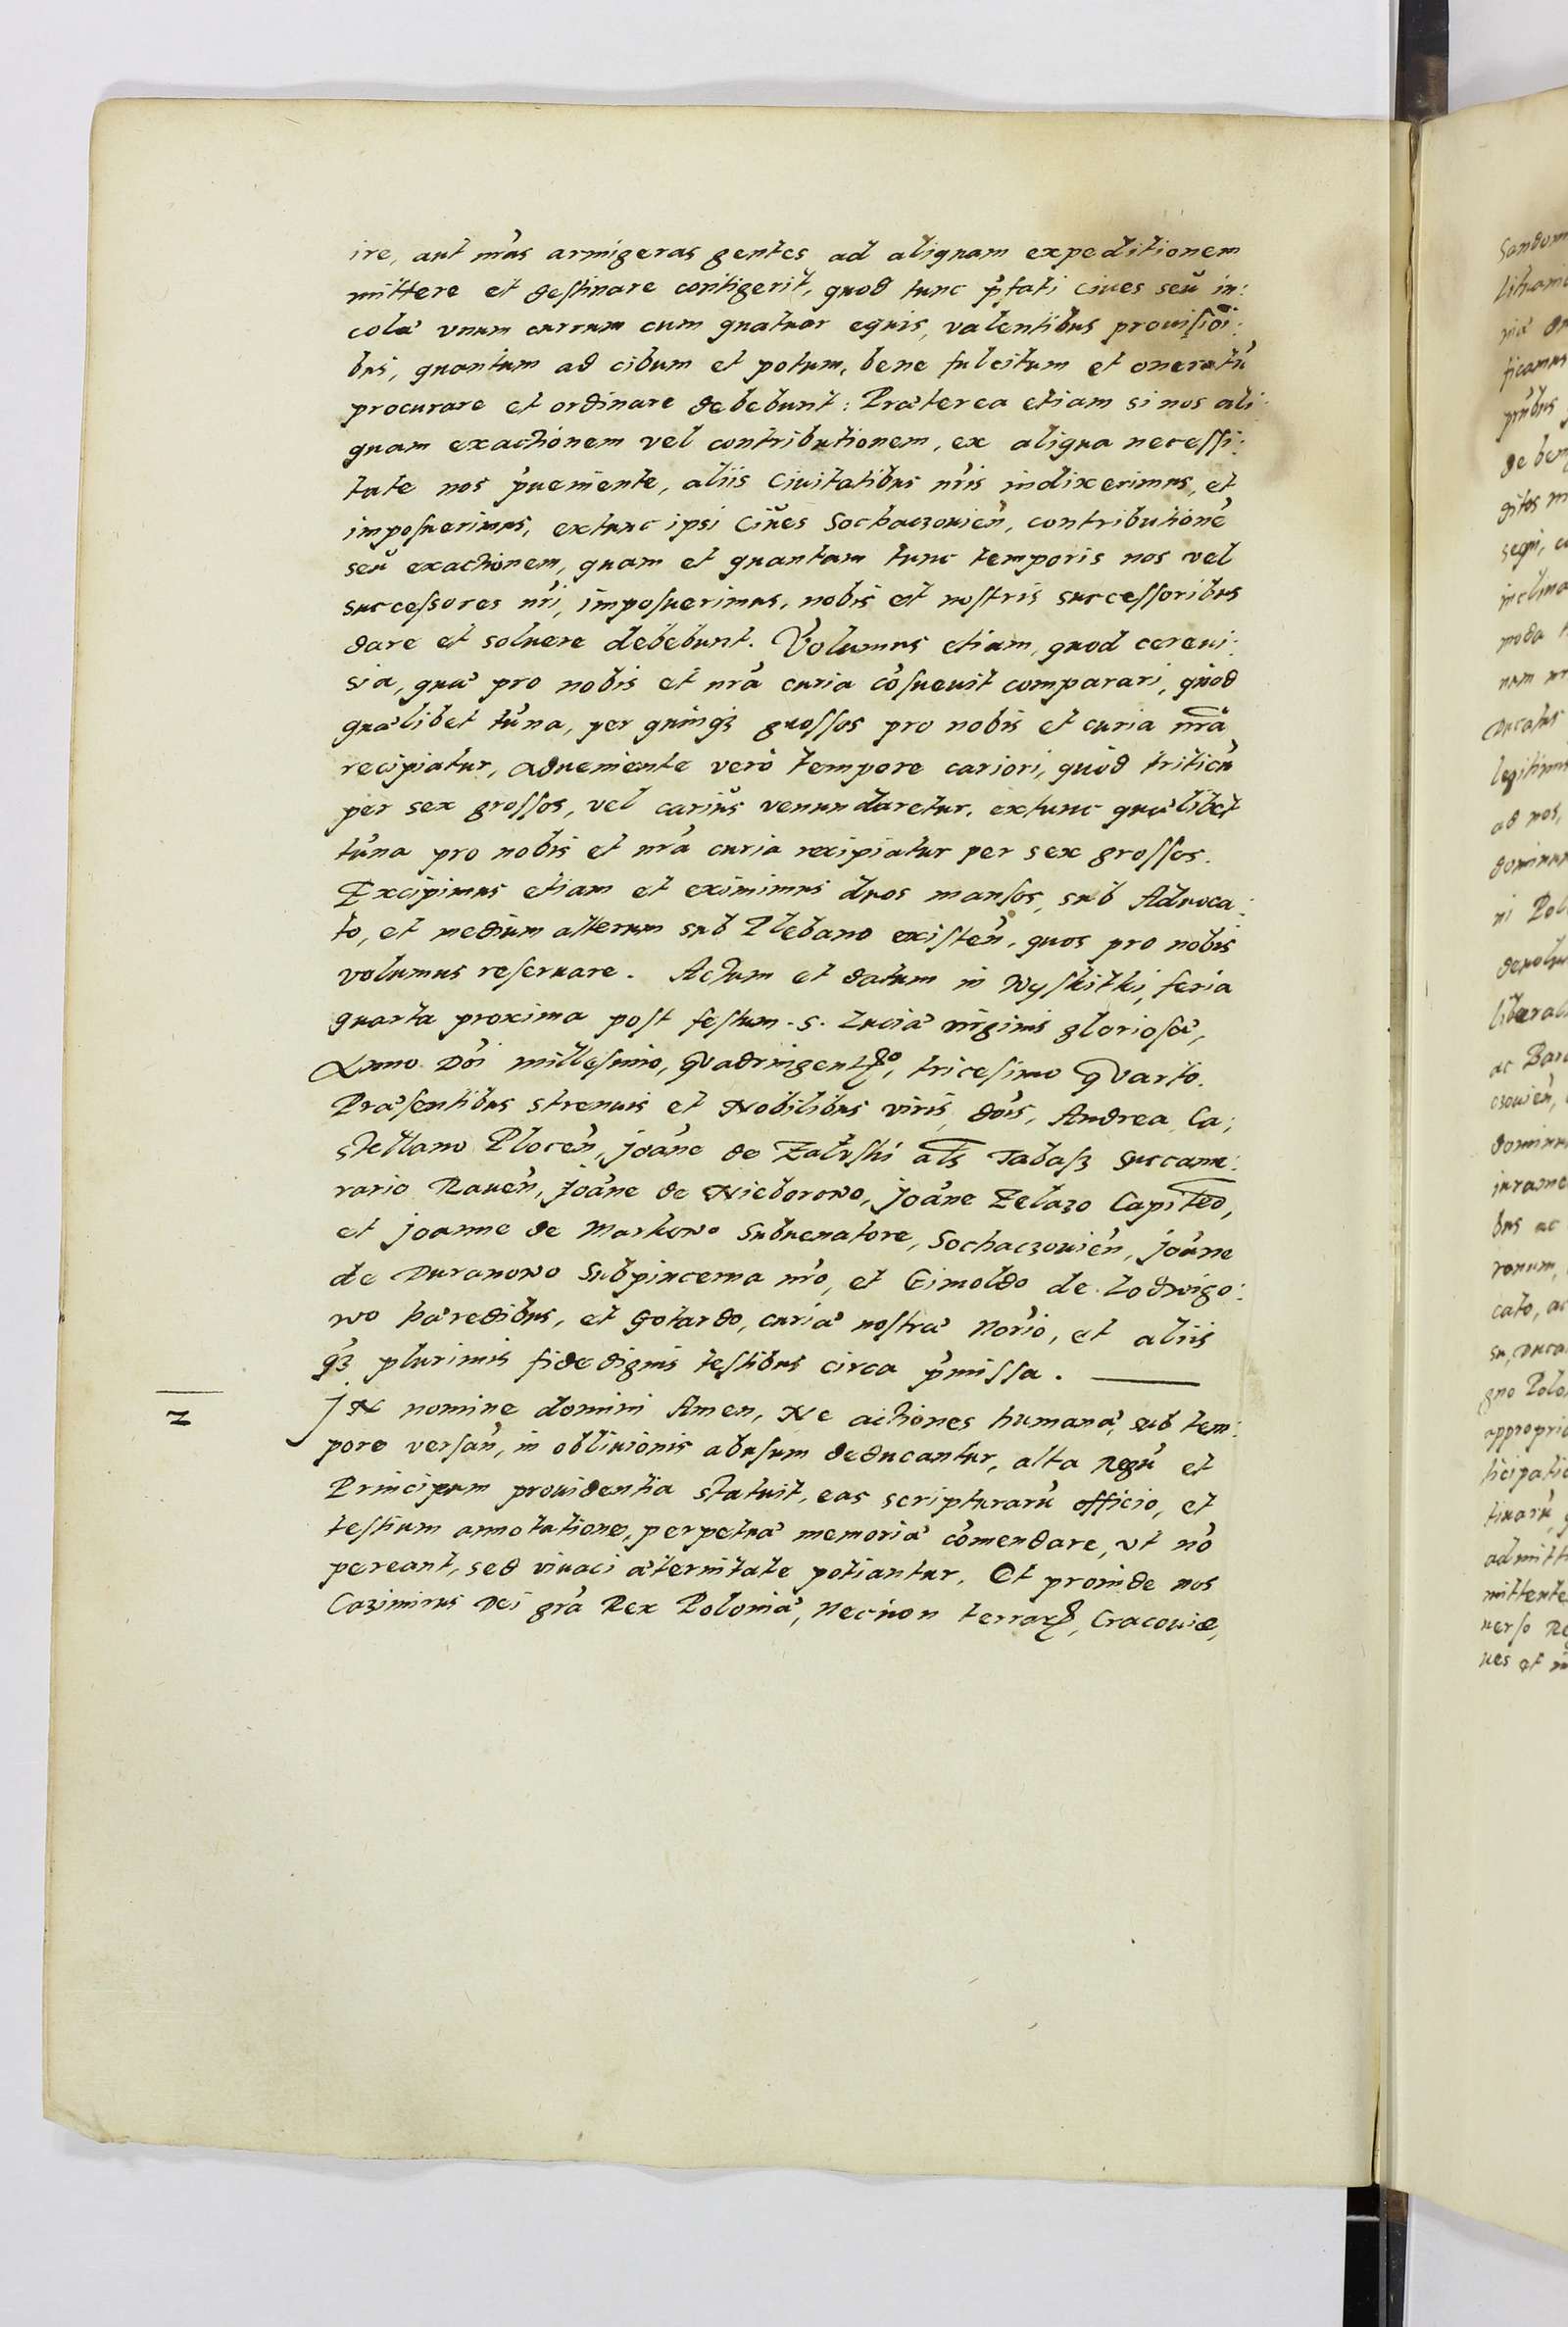 ire, aut nr̃as armigeras gentes ad aliquam expeditionem
mittere et destinare contigerit, quod tunc p̃fati ciues seu in:
colæ vnum currum cum quatuor equis, valentibus prouisiõi:
bus, quantum ad cibum et potum, bene fulcitum et oneratũ
procurare et ordinare debebunt: Præterea etiam si nos ali:
quam exactionem vel contributionem, ex aliqua necessi:
tate nos p̃ueniente, aliis Ciuitatibus nr̃is indixerimus, et
imposuerimus, extunc ipsi Ciues Sochaczouieñ, contributionẽ
seu exactionem, quam et quantam tunc temporis nos vel
successores nr̃i, imposuerimus, nobis et nostris successoribus
dare et soluere debebunt. Volumus etiam, quod cereui:
sia, quæ pro nobis et nr̃a curia cõsueuit comparari, quod
quælibet tũna, per quinqꝫ grossos pro nobis et curia nr̃a
recipiatur, adueniente verò tempore cariori, quòd triticũ
per sex grossos, vel cariùs venundaretur, extunc quælibet
tũna pro nobis et nr̃a curia recipiatur per sex grossos.
Excipimus etiam et eximimus duos mansos, sub Aduoca:
to, et medium alterum sub Plebano existeñ, quos pro nobis
volumus reseruare. Actum et datum in Wyskitki, feria
quarta proxima post festum .S. Luciæ virginis gloriosæ,
Anno Dõi millesimo, quadringentꝭo, tricesimo quarto.
Præsentibus strenuis et Nobilibus viris, dõis, Andrea, Ca:
stellano Ploceñ, Joãne de Zaluski als Tabasz Succame:
rario Raueñ, Joãne de Nieborowo, Joãne Zelazo Capiteo,
et Joanne de Markowo Subuenatore, Sochaczouieñ, Joãne
de Duranowo Subpincerna nr̃o, et Gimoldo de Lodwigo:
wo hæredibus, et Gotardo, curiæ nostræ Norio, et aliis
qꝫ plurimis fidedignis testibus circa p̃missa.
2
IN nomine domini Amen, Ne actiones humanæ, sub tem:
pore versañ, in obliuionis abusum deducantur, alta Regũ et
Principum prouidentia statuit, eas scripturarũ officio, et
testium annotatione, perpetuæ memoriæ cõmendare, vt nõ
pereant, sed viuaci æternitate potiantur. Et proinde nos
Cazimirus Dei gr̃a Rex Poloniæ, Necnon terrarꝝ, Cracouiæ,